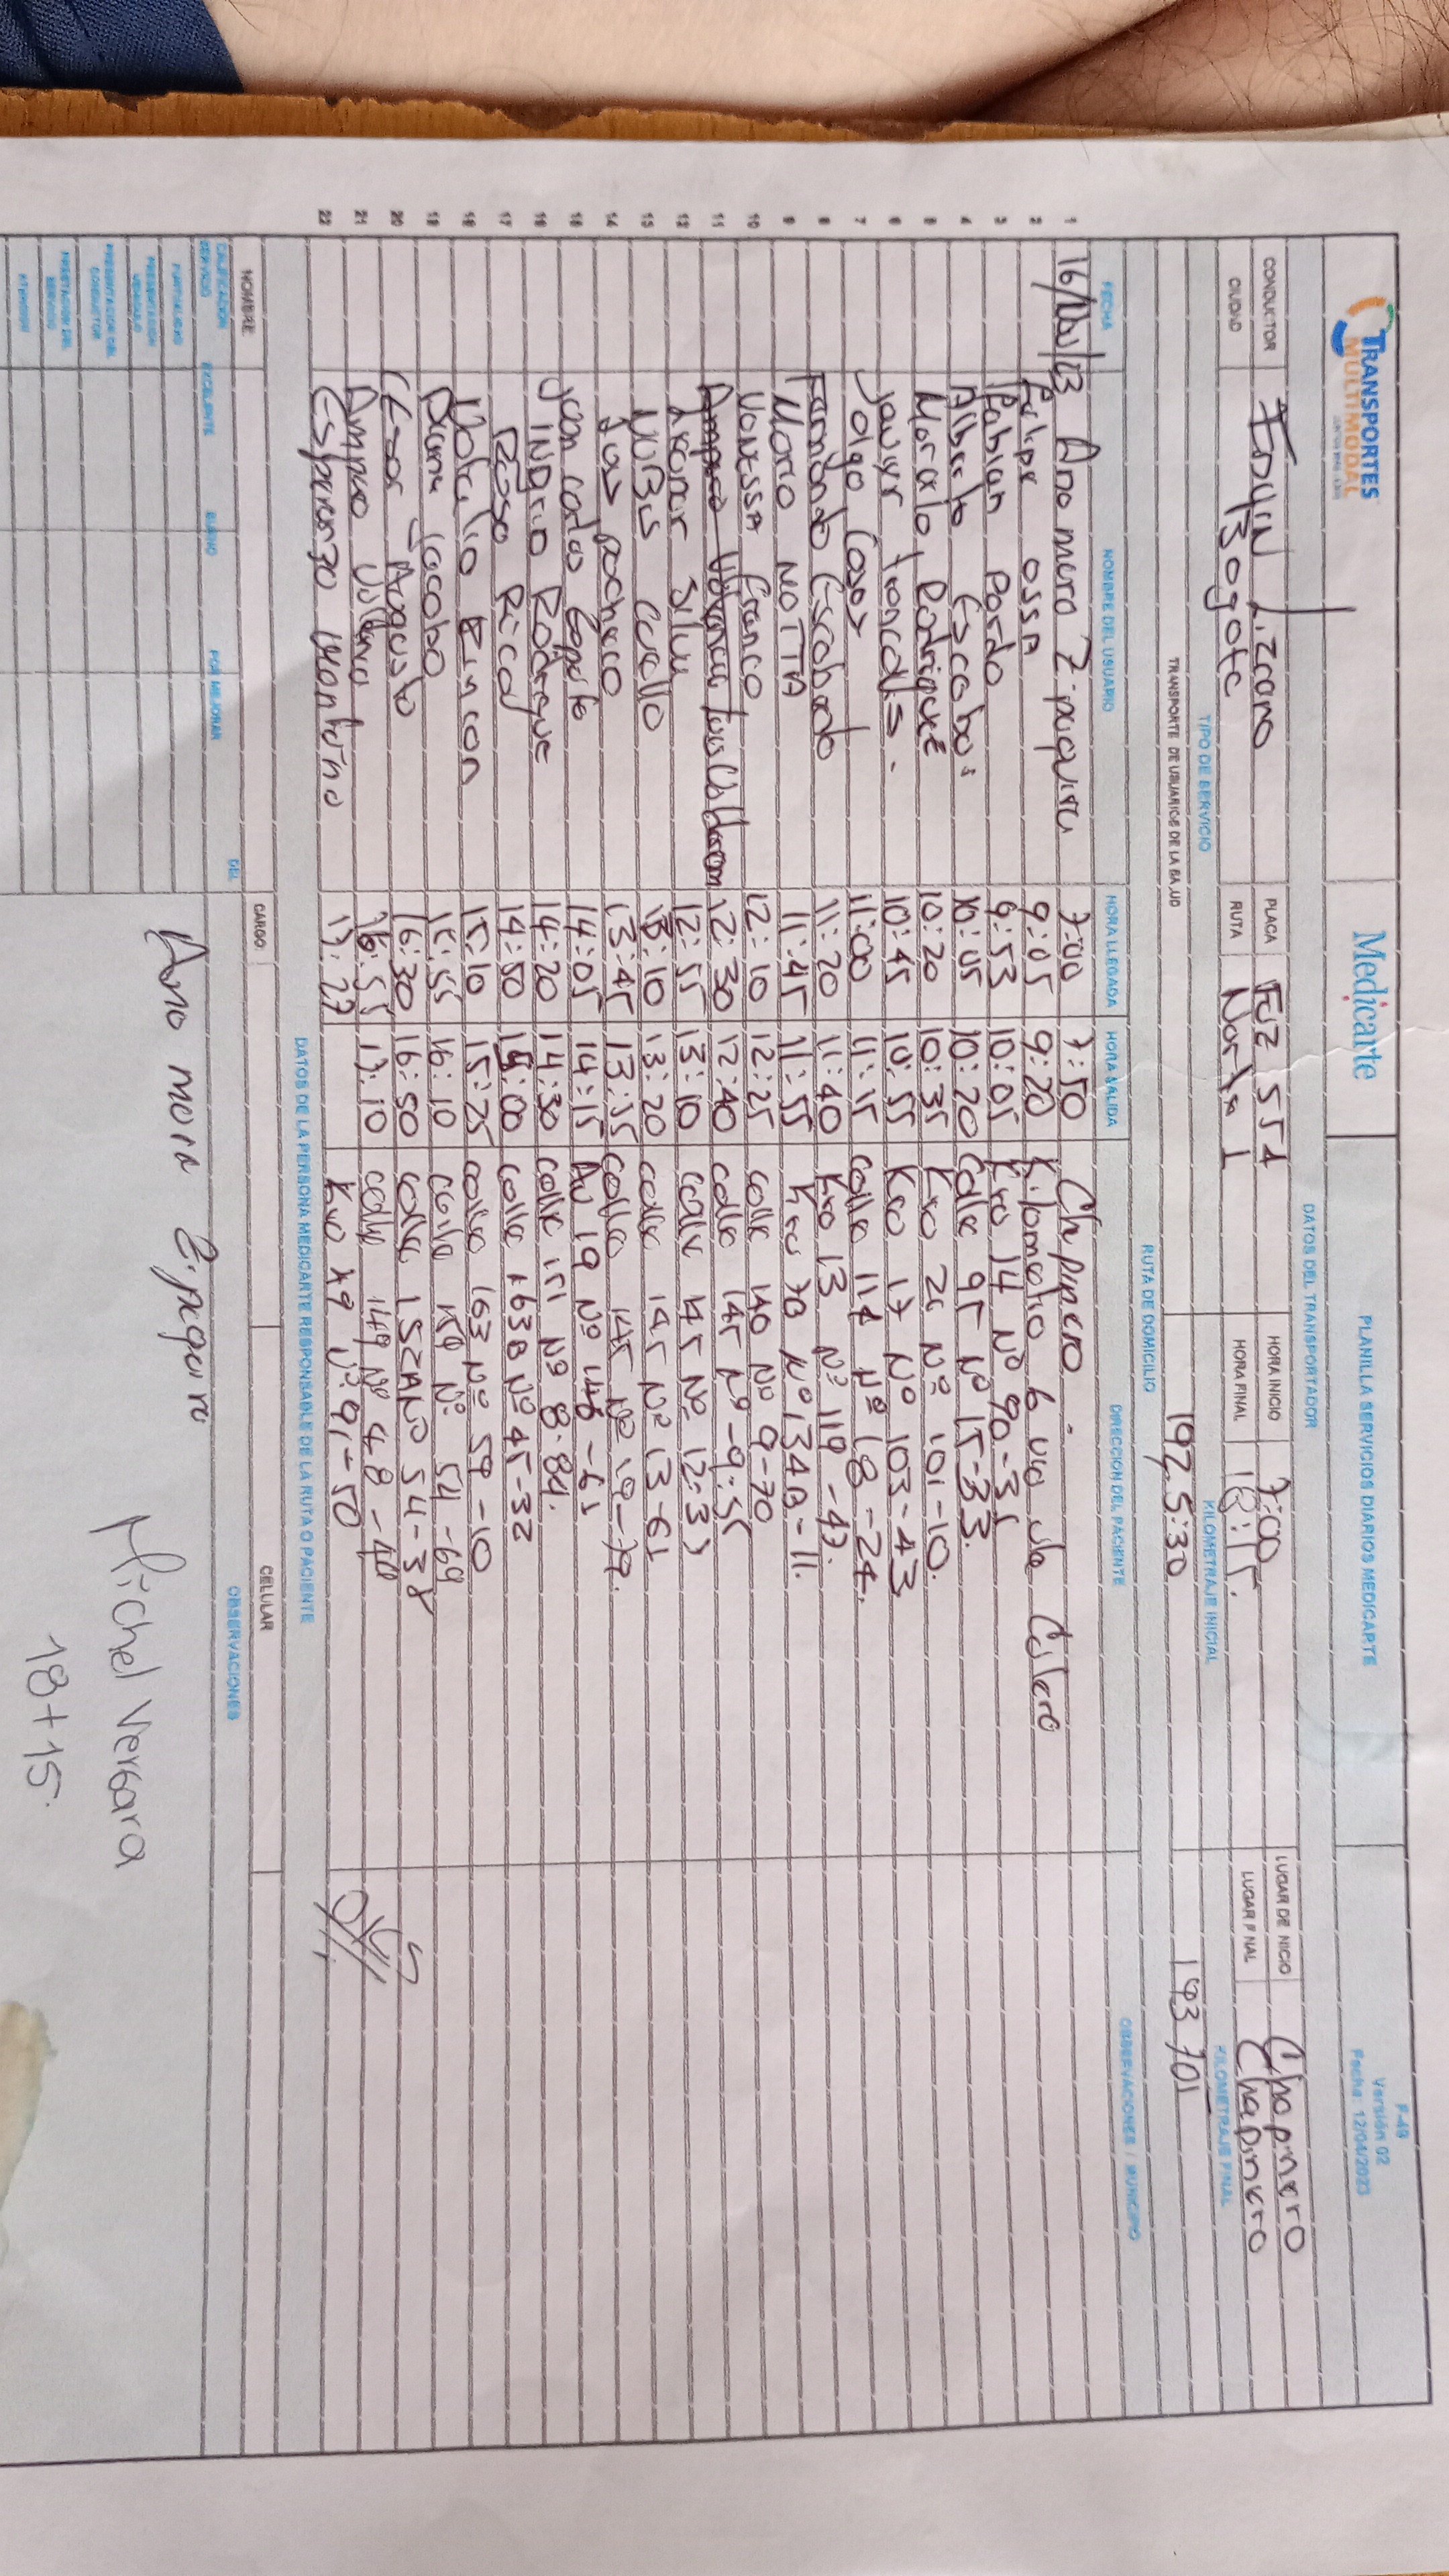 TRANSPORTES MULTIMODAL
Medicarte
PLANILLA SERVICIOS DIARIOS MEDICARTE
F-49
Versión 02
Fecha: 12/04/2023
DATOS DEL TRANSPORTADOR
CONDUCTOR EDWIN Lizcano PLACA FUZ 551 HORA INICIO 7:00 LUGAR DE INICIO Chapinero
CIUDAD Bogota RUTA Norte 1 HORA FINAL 18:15. LUGAR FINAL Chapinero
TIPO DE SERVICIO KILOMETRAJE INICIAL KILOMETRAJE FINAL
TRANSPORTE DE USUARIOS DE LA SALUD 192.5:30 193 701
RUTA DE DOMICILIO
FECHA NOMBRE DEL USUARIO HORA LLEGADA HORA SALIDA DIRECCION DEL PACIENTE OBSERVACIONES / MUNICIPIO
1 16/Nov/23 Ana mora Zipaquira 7:00 7:50 Chapinero.
2 Felipe ossa 9:05 9:20 Kilometro 6 via la Calera
3 Fabian Pardo 9:53 10:05 Kra 14 Nº 90-31
4 Alberto 10:05 10:20 Calle 95 Nº 15-33.
5 Rodriguez 10:20 10:35 Kra 20 Nº 101-10.
6 10:45 10:55 Kra 17 Nº 103-43
7 11:00 11:15 Calle 114 Nº 18-24.
8 Fernando Escobar 11:20 11:40 Kra 13 Nº 119-47.
9 Maria NOTTA 11:45 11:55 Kra 70 Nº 134B-11.
10 Vanessa Franco 12:10 12:25 calle 140 Nº 9-70
11 12:30 12:40 calle 145 Nº-9:55
12 Silva 12:55 13:10 calle 145 Nº 12:31
13 NUBIS 13:10 13:20 calle 145 Nº 13-61
14 pacheco 13:45 13:55 Calle 145 Nº 19-77.
15 Juan carlos 14:05 14:15 AV 19 Nº 146-61
16 INDRID Rodrigue 14:20 14:30 calle 151 Nº 8-84.
17 Rosa Rico 14:50 15:00 calle 163B Nº 45-32
18 Natalia Rincon 15:10 15:25 calle 163 Nº 59-10
19 Diana Jacobo 15:55 16:10 calle 159 Nº 54-69
20 Cesar Augusto 16:30 16:50 calle 152A Nº 54-38
21 Amparo 16:55 17:10 calle 149 Nº 48-40
22 Esperanza 17:27
DATOS DE LA PERSONA MEDICARTE RESPONSABLE DE LA RUTA O PACIENTE
NOMBRE CARGO CELULAR
CALIFICACION DEL SERVICIO EXCELENTE BUENO POR MEJORAR OBSERVACIONES
PUNTUALIDAD
PRESENTACION VEHICULO
PRESENTACION DEL CONDUCTOR
PRESTACION DEL SERVICIO
ATENCION
Ana mora Zipaquira
Michel Vergara
18+15.